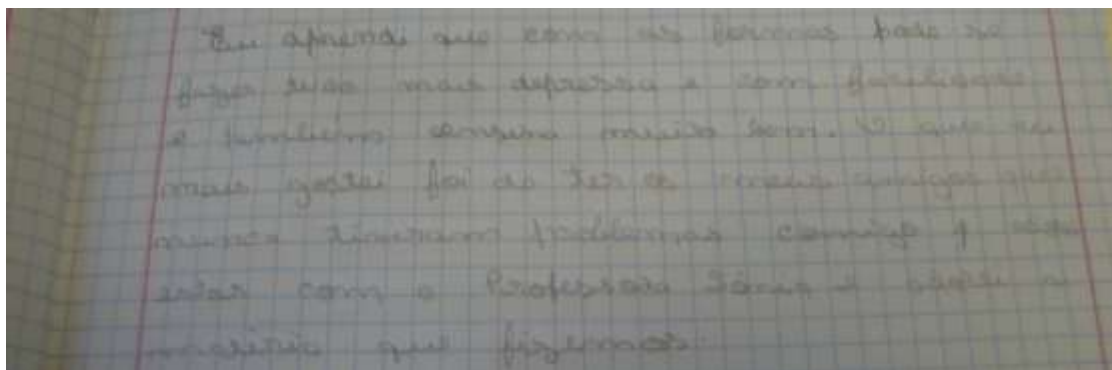 Eu aprendi que com as formas pode se
fazer tudo mais depressa e com facilidade
e também muito bem. O que eu
mais gostei foi de ter os meus amigos que
nunca tiveram problemas comigo e
estar com a Professora Sónia e a
matéria que fizemos.